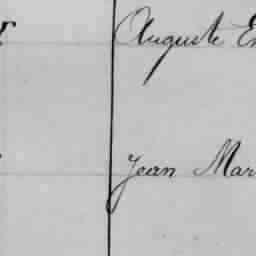 Auguste
Jean Mar